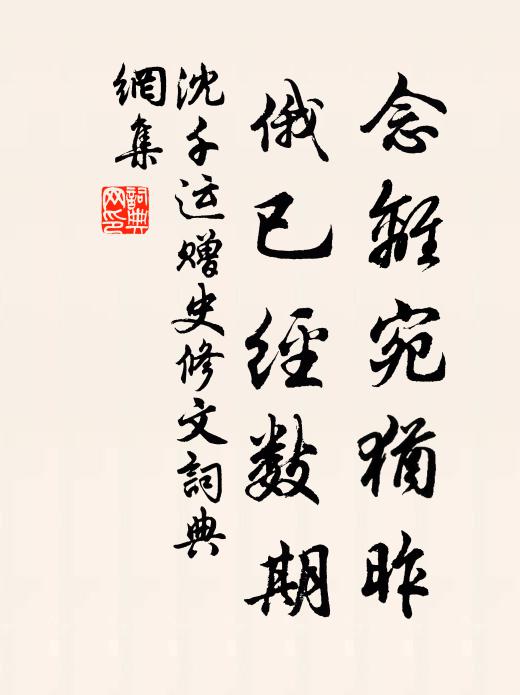 念離宛猶昨
俄已經數期
沈千运贈史修文詞典
網集
詞典
网印